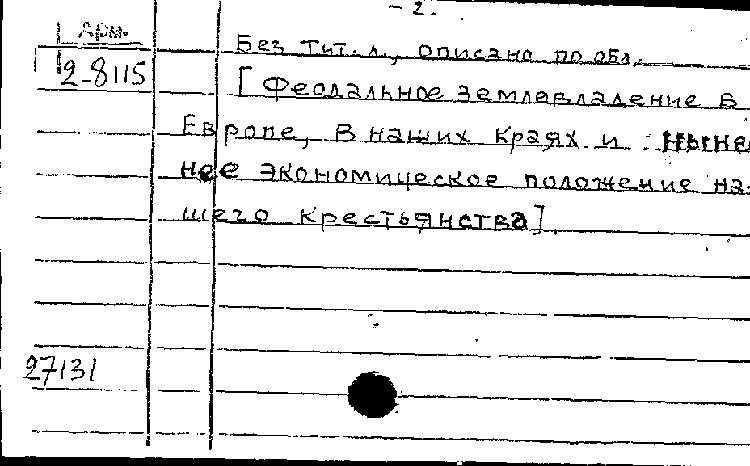 - 2.
Арм.
2-8115
Без тит. л., описано по обл.
[Феодальное землевладение в
Европе, в наших краях и ныне
нее экономическое положение на-
шего крестьянства]
27131